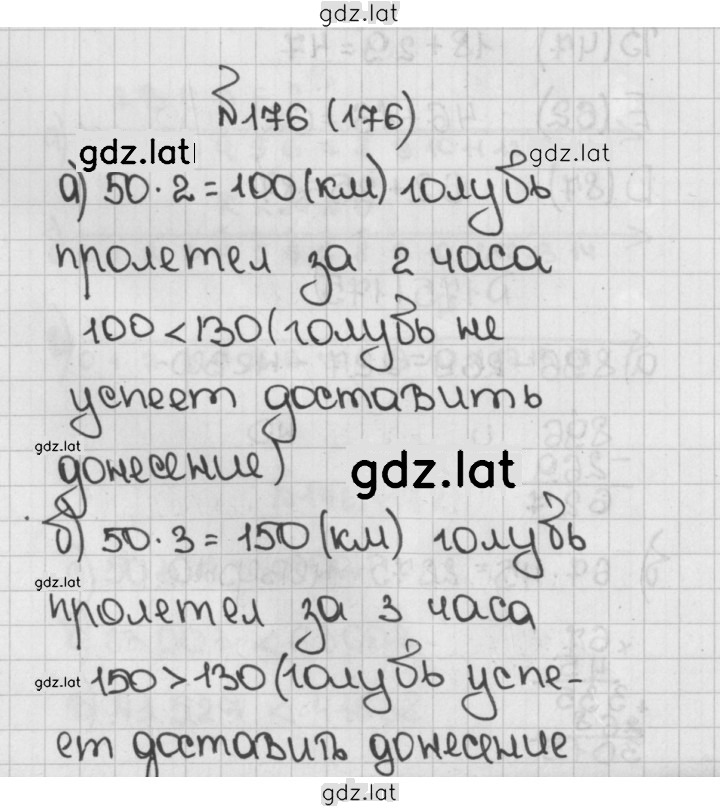 gdz.lat
№176 (176)
gdz.lat gdz.lat
а) 50·2=100(км) голубь
пролетел за 2 часа
100<130(голубь не
успеет доставить
gdz.lat
донесение)
gdz.lat
б) 50·3=150(км) голубь
gdz.lat
пролетел за 3 часа
gdz.lat 150>130(голубь успе-
ет доставить донесение
gdz.lat